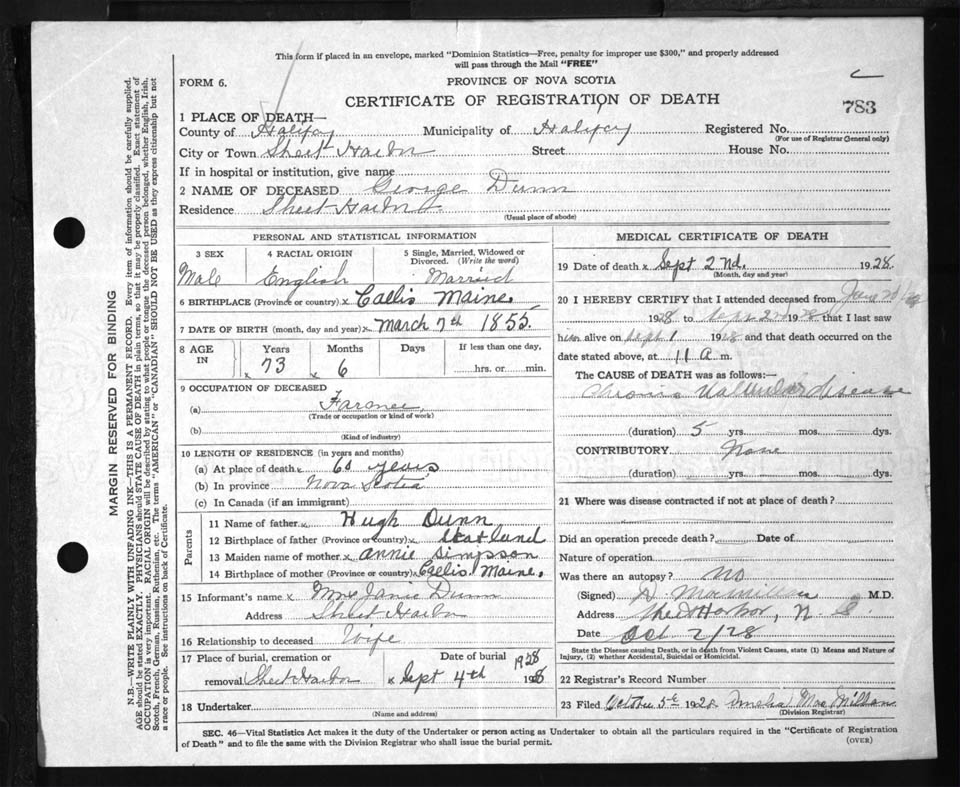 This form if placed in an envelope, marked "Dominion Statistics—Free, penalty for improper use $300," and properly addressed
will pass through the Mail "FREE"
FORM 6.
PROVINCE OF NOVA SCOTIA
CERTIFICATE OF REGISTRATION OF DEATH
783
1 PLACE OF DEATH—
County of Halifax Municipality of Halifax Registered No.
(For use of Registrar General only)
City or Town Sheet Harbor Street House No.
If in hospital or institution, give name
2 NAME OF DECEASED George Dunn
Residence Sheet Harbor
(Usual place of abode)
PERSONAL AND STATISTICAL INFORMATION
3 SEX 4 RACIAL ORIGIN 5 Single, Married, Widowed or Divorced. (Write the word)
Male English Married
6 BIRTHPLACE (Province or country) x Callis Maine.
7 DATE OF BIRTH (month, day and year) x March 7th 1855.
8 AGE IN Years Months Days If less than one day,
x 73 x 6 hrs. or min.
9 OCCUPATION OF DECEASED
(a) Farmer
(Trade or occupation or kind of work)
(b)
(Kind of industry)
10 LENGTH OF RESIDENCE (in years and months)
(a) At place of death x 60 years
(b) In province Nova Scotia
(c) In Canada (if an immigrant)
Parents
11 Name of father x Hugh Dunn
12 Birthplace of father (Province or country) x Scotland
13 Maiden name of mother x Annie Simpson
14 Birthplace of mother (Province or country) x Callis Maine.
15 Informant's name x Mrs Janie Dunn
Address Sheet Harbor
16 Relationship to deceased Wife
17 Place of burial, cremation or Date of burial 1928
removal Sheet Harbor x Sept 4th 1928
18 Undertaker
(Name and address)
MEDICAL CERTIFICATE OF DEATH
19 Date of death x Sept 2nd. 1928.
(Month, day and year)
20 I HEREBY CERTIFY that I attended deceased from Jan
1928 to Sept 2nd 1928 that I last saw
him alive on Sept 1 1928 and that death occurred on the
date stated above, at 11 a. m.
The CAUSE of DEATH was as follows:
Chronic Valvular disease
(duration) 5 yrs. mos. dys.
CONTRIBUTORY None
(duration) yrs. mos. dys.
21 Where was disease contracted if not at place of death?
Did an operation precede death? Date of
Nature of operation
Was there an autopsy? No
(Signed) D MacMillan M.D.
Address Sheet Harbor, N. S.
Date Oct 2/28
State the Disease causing Death, or in death from Violent Causes, state (1) Means and Nature of
Injury, (2) whether Accidental, Suicidal or Homicidal.
22 Registrar's Record Number
23 Filed October 5th 1928. MacMillan
(Division Registrar)
SEC. 46—Vital Statistics Act makes it the duty of the Undertaker or person acting as Undertaker to obtain all the particulars required in the "Certificate of Registration
of Death" and to file the same with the Division Registrar who shall issue the burial permit.
(OVER)
MARGIN RESERVED FOR BINDING
N.B.—WRITE PLAINLY WITH UNFADING INK—THIS IS A PERMANENT RECORD. Every item of information should be carefully supplied.
AGE should be stated EXACTLY. PHYSICIANS should STATE CAUSE OF DEATH in plain terms, so that it may be properly classified. Exact statement of
OCCUPATION is very important. RACIAL ORIGIN will be described by stating to what people or tongue the deceased person belonged, whether English, Irish,
Scotch, French, German, Russian, Ruthenian, etc. The terms "AMERICAN" or "CANADIAN" SHOULD NOT BE USED as they express citizenship but not
a race or people. See instructions on back of Certificate.